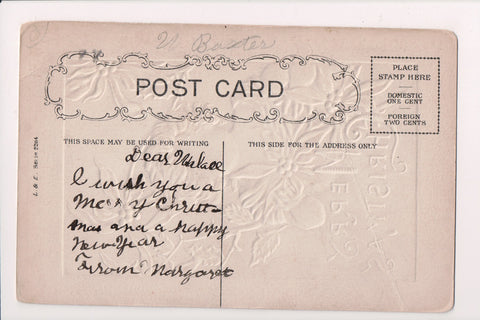 W Baxter
POST CARD
PLACE
STAMP HERE
DOMESTIC
ONE CENT
FOREIGN
TWO CENTS
THIS SPACE MAY BE USED FOR WRITING
THIS SIDE FOR THE ADDRESS ONLY
L & E. Serie 2264
Dear Wallace
I wish you a
Merry Christ
mas and a happy
New Year
From Margaret